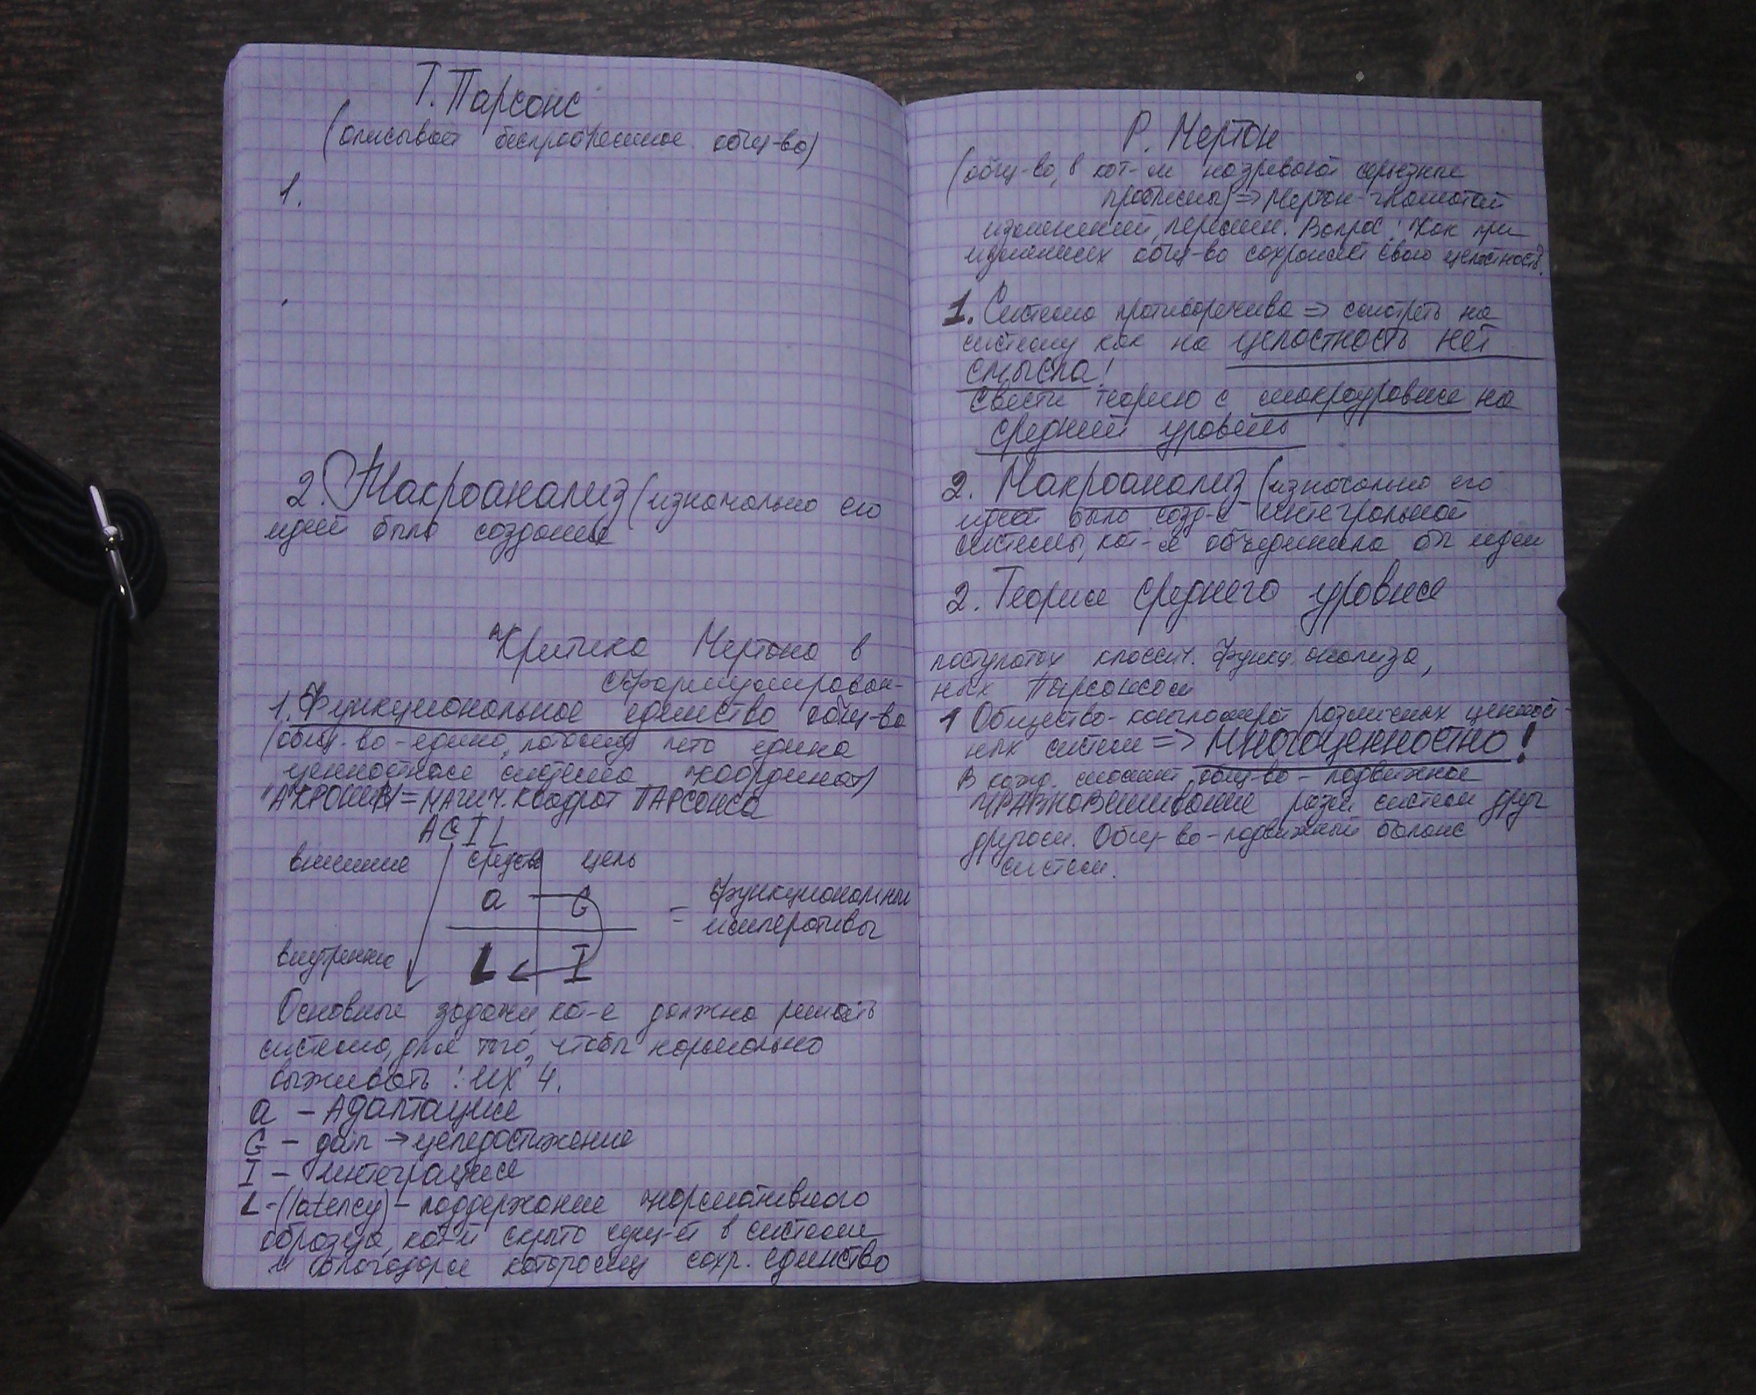 Т. Парсонс
(описывает беспроблемное общ-во)
1.
2. Макроанализ (изначально его
идеей было создание
Критика Мертона в
сформулирован-
1. Функциональное единство общ-ва
(общ-во - едино, потому что едина
ценностная система координат)
АКРОНИМ = МАГИЧ. Квадрат ПАРСОНСА
AGIL
внешние средств цель
a G = функциональные
императивы
внутренне L I
Основные задачи, кот-е должна решать
система, для того, чтобы нормально
выживать: их 4.
a – Адаптация
G – goal → целедостижение
I – интеграция
L - (latency) – поддержание нормативного
образца, кот-й скрыто сущ-ет в системе
и благодаря которому сохр. единство
Р. Мертон
(общ-во, в кот-м назревают серьезные
проблемы) => Мертон -
изменений, перемен. Вопрос: Как при
изменениях общ-во сохраняет свою целостность?
1. Система противоречива => смотреть на
систему как на целостность нет
смысла!
Свести теорию с макроуровня на
средний уровень
2. Макроанализ (изначально его
идеей было созд-е интегральной
системы, кот-я объединила бы идеи
2. Теория среднего уровня
постулатов классич. функц. анализа,
ных Парсонсом
1 Общество - конгломерат различных ценност-
ных систем => многоценностно!
В кажд. момент общ-во - подвижное
УРАВНОВЕШИВАНИЕ разн. систем друг
другом. Общ-во - подвижный баланс
систем.